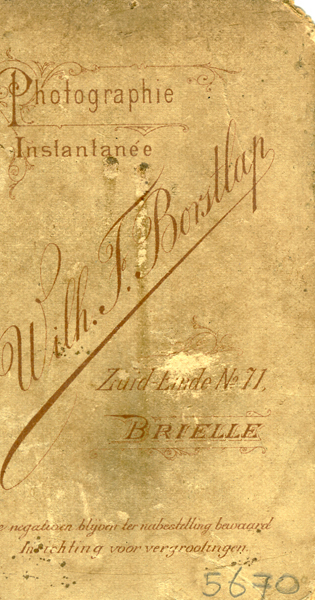 Photographie
Instantanée
Wilh. F. Borstlap
Zuid-Einde No. 71,
BRIELLE
negatieven blijven ter nabestelling bewaard
Inrichting voor vergrootingen.
5670